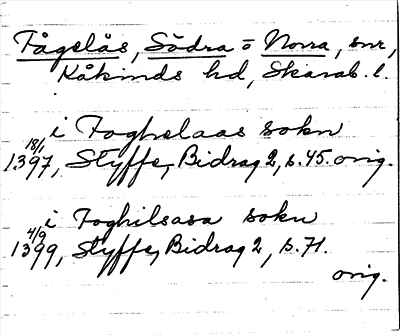 Fågelås, Södra o Norra, snr,
Kåkinds hd, Skarab. l.
i Foghelaas sokn
18/1 1397, Styffe, Bidrag 2, s. 45. orig.
i Foghilsasa sokn
4/9 1399, Styffe, Bidrag 2, s. 71.
orig.